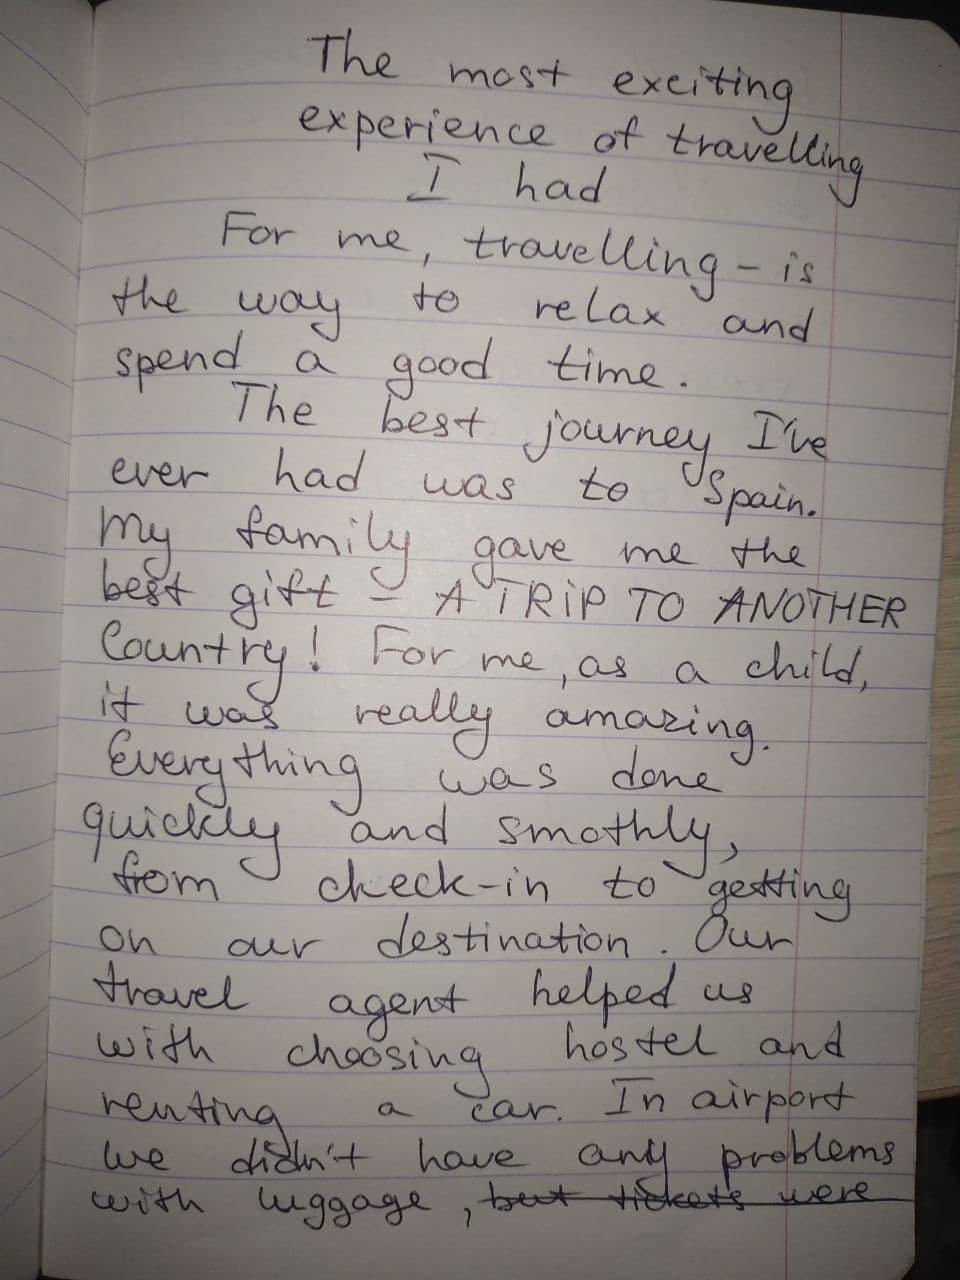 The most exciting
experience of travelling
I had
For me, travelling - is
the way to relax and
spend a good time.
The best journey I've
ever had was to Spain.
My family gave me the
best gift - A TRiP TO ANOTHER
Country! For me, as a child,
it was really amazing.
Everything was done
quickly and smothly,
from check-in to getting
on our destination. Our
travel agent helped us
with choosing hostel and
renting a car. In airport
we didn't have any problems
with luggage, but tickets were